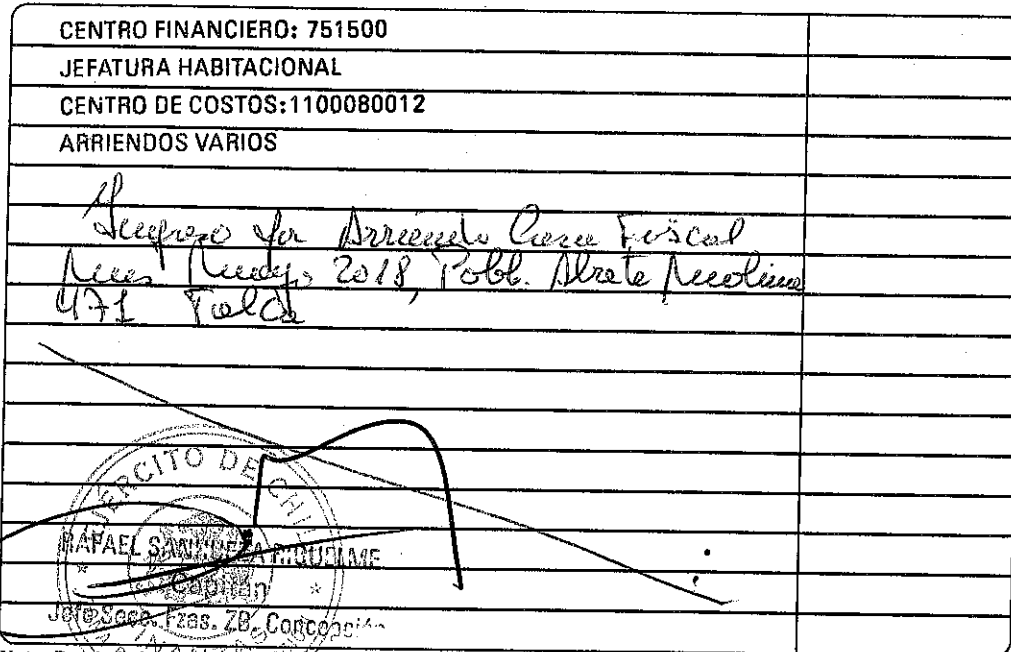 CENTRO FINANCIERO: 751500
JEFATURA HABITACIONAL
CENTRO DE COSTOS:1100080012
ARRIENDOS VARIOS
Ingreso por Arriendo Casa Fiscal
Mes Mayo 2018, Pobl. Abate Molina
471 Talca
EJERCITO DE CHILE
RAFAEL SANHUEZA RIQUELME
Capitán
Jefe Secc. Fzas. ZB. Concepción